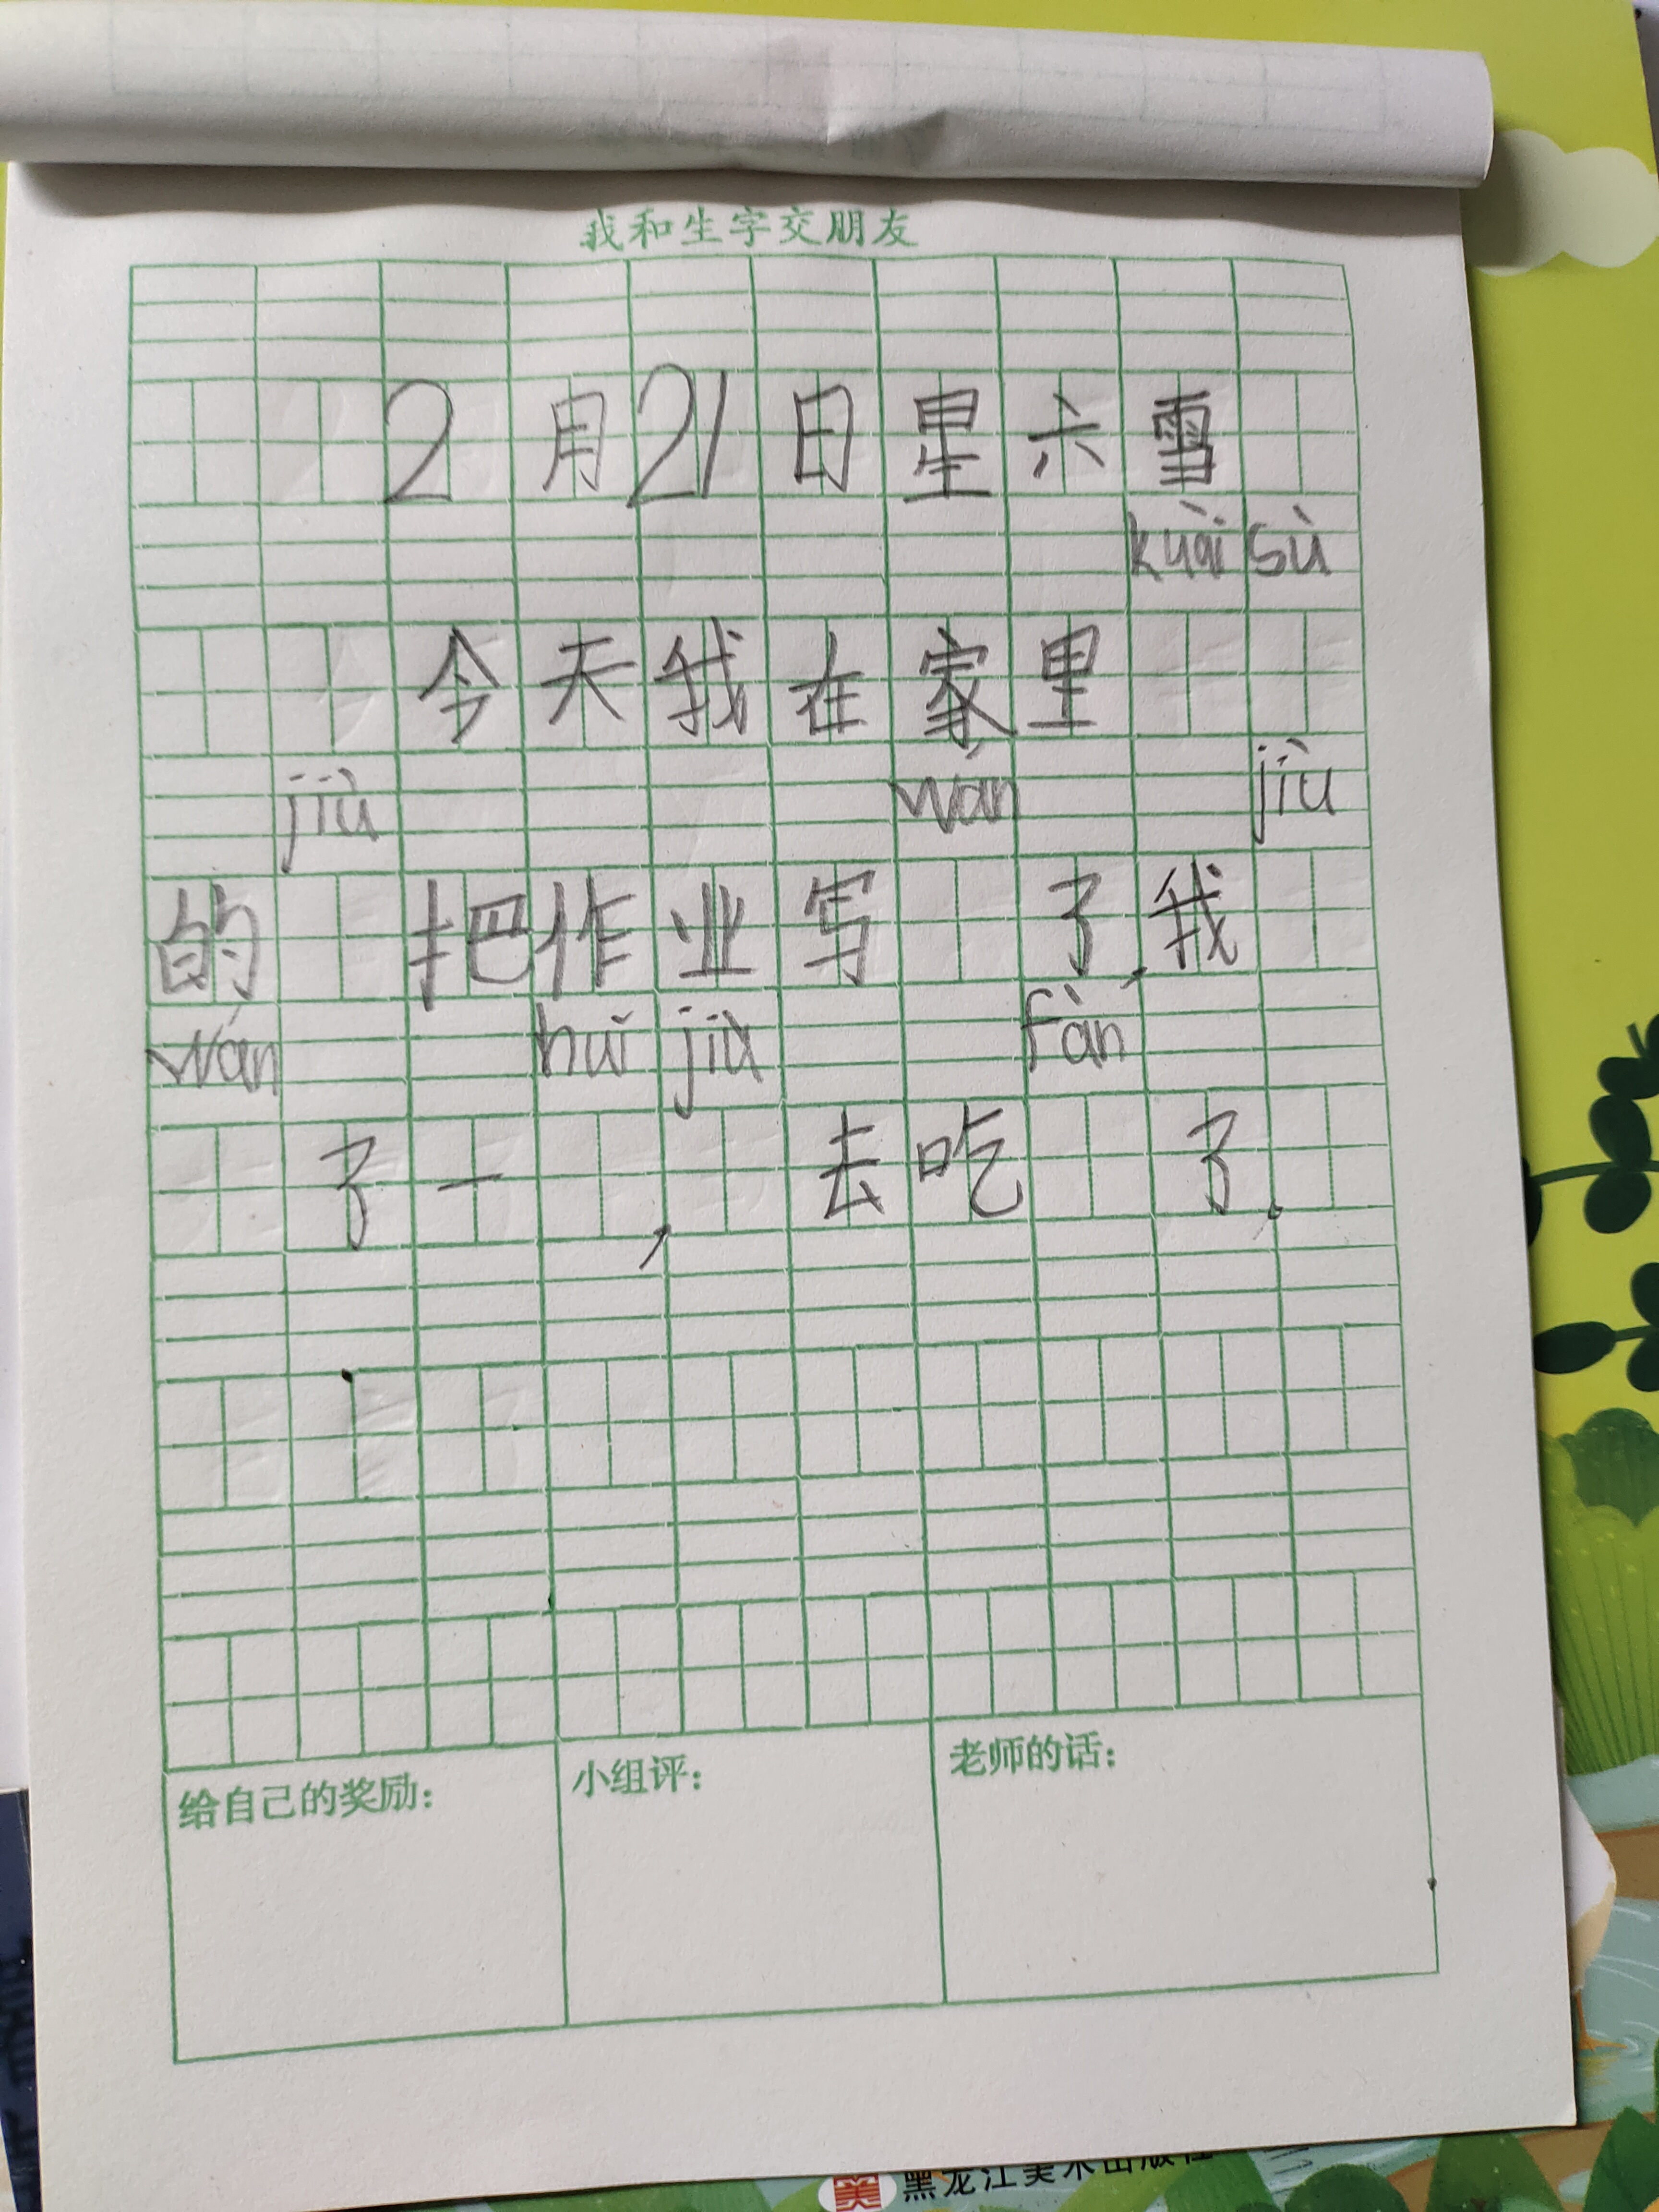 我和生字交朋友
2月21日星六雪
kuài sù
今天我在家里
jiù wán jiù
的 把作业写 了,我
wán huǐ jiù fàn
了一 , 去吃 了.
给自己的奖励:
小组评:
老师的话:
美 黑龙江美术出版社